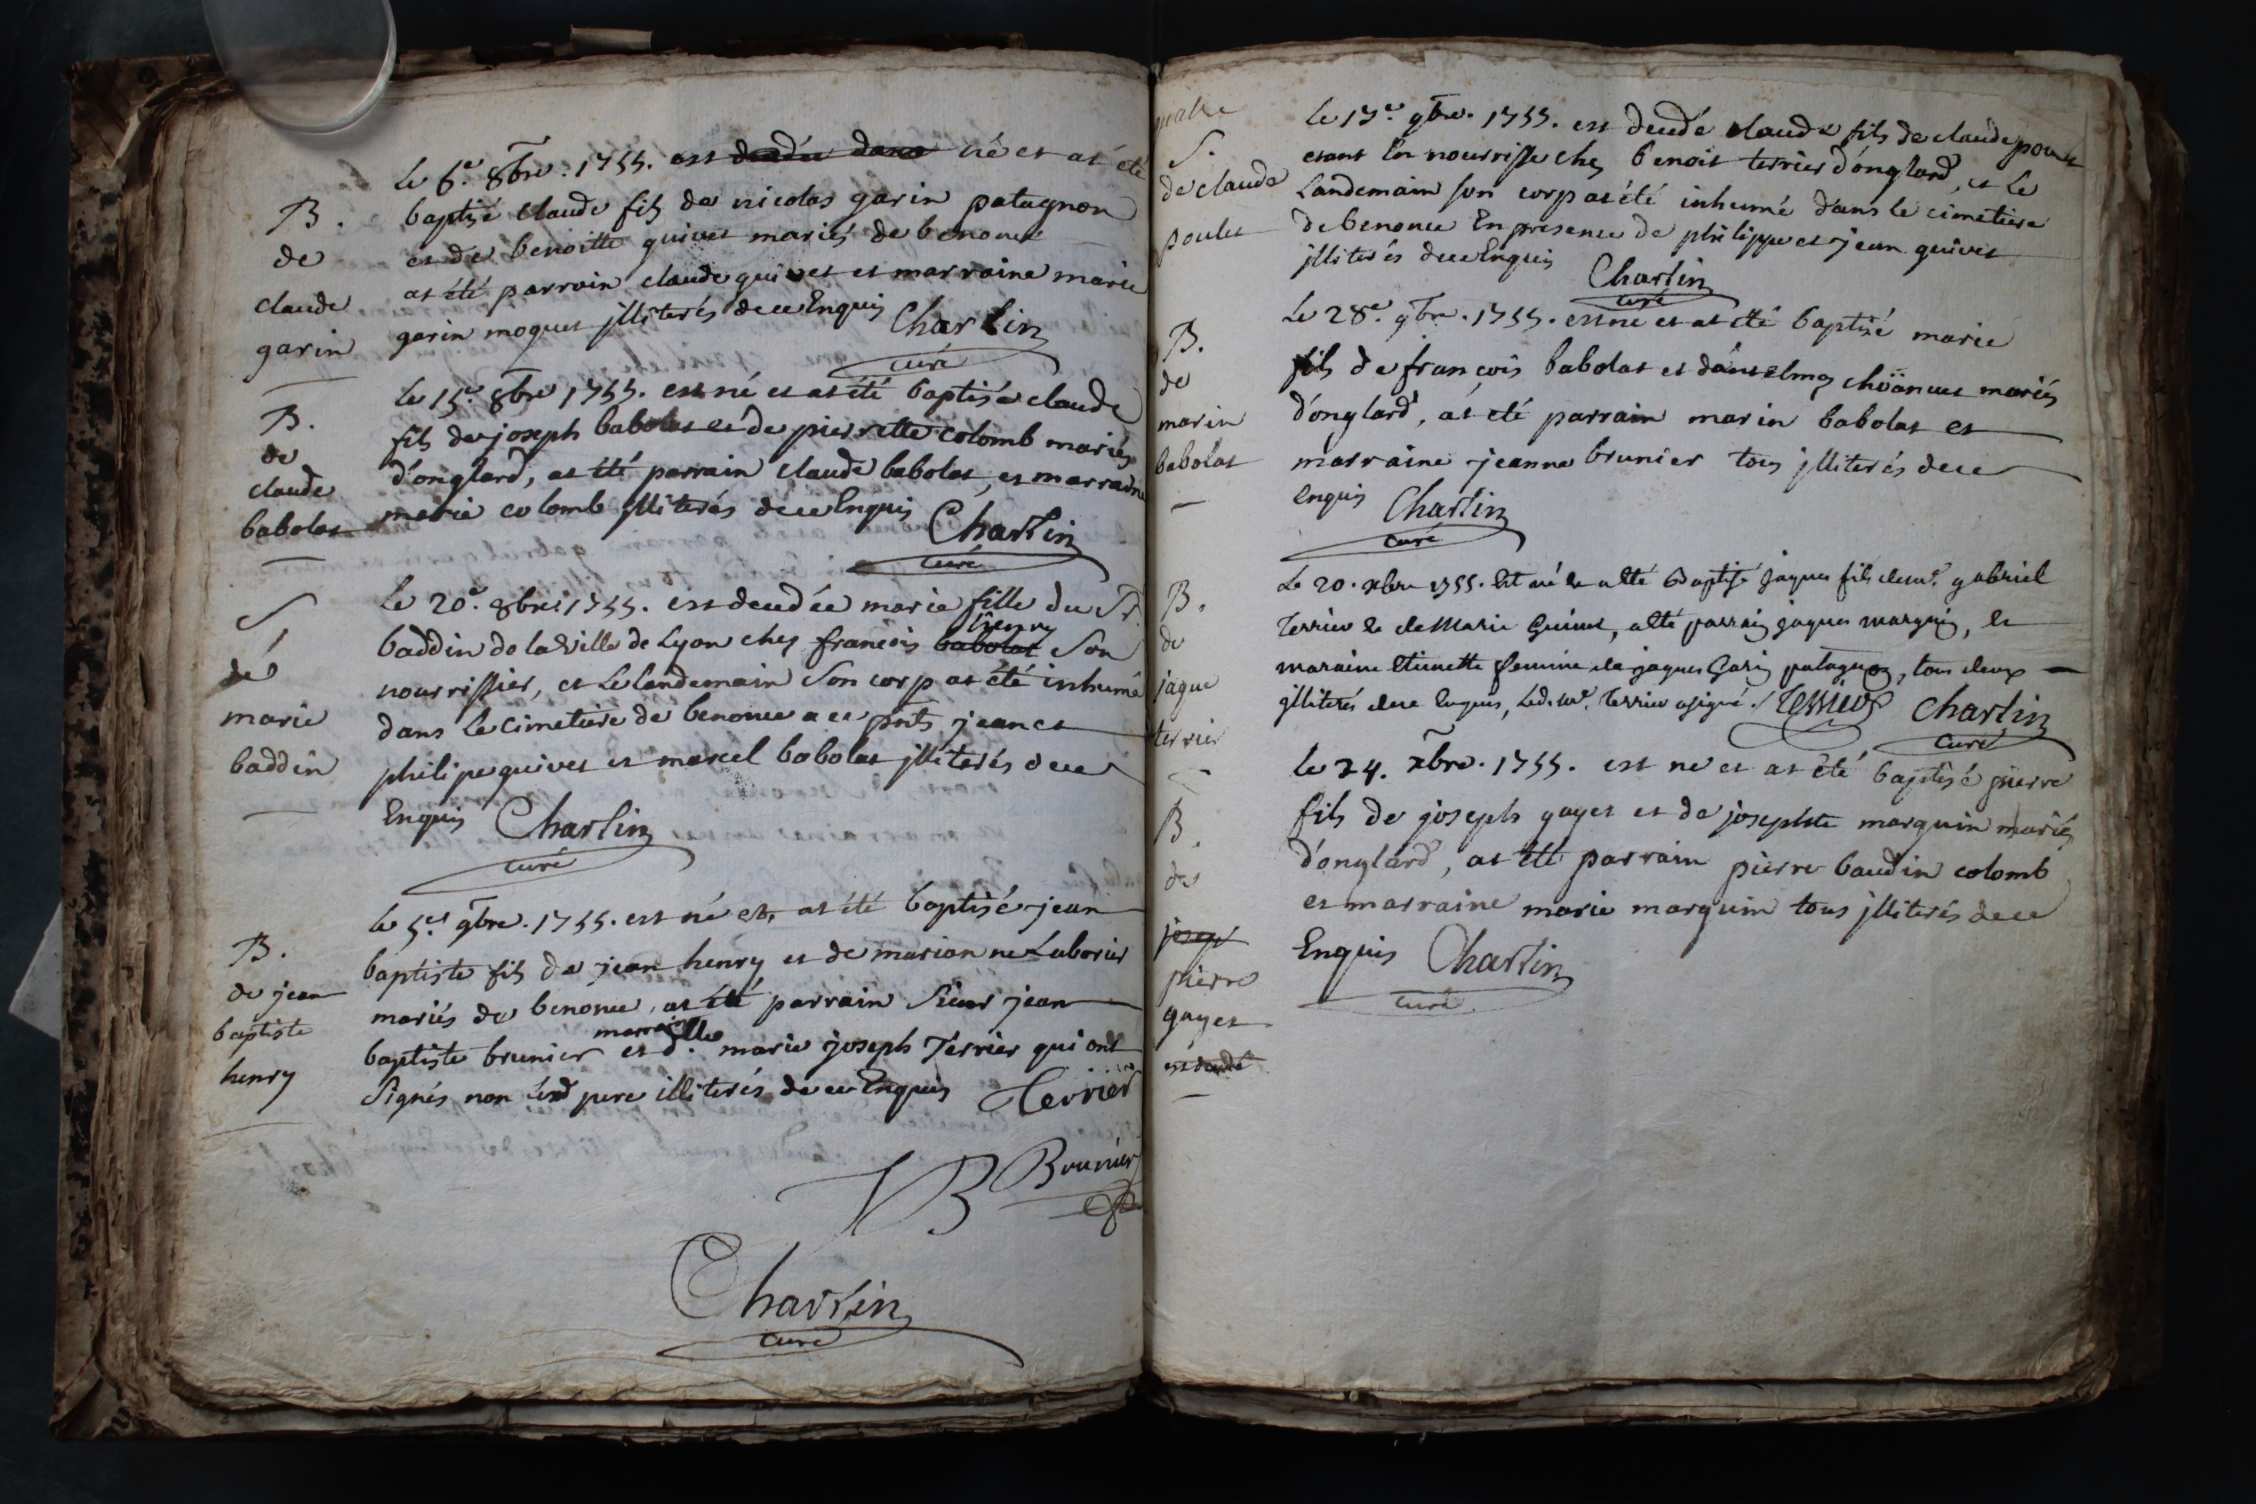 B.
de
claude
garin
le 6.e 8bre. 1755. est decedée dans né et at été
baptisé claude fils de nicolas garin patagnon
et de benoitte quivet mariés de benonce
at été parrain claude quivet et marraine marie
garin moquet jlliterés de ce Enquis Charlin
curé
B.
de
claude
babolat
le 15.e 8bre 1755. est né et at été baptisé claude
fils de joseph babolat et de pierrette colomb mariés
d'onglard, at été parrain claude babolat, et marraine
marie colomb jlliterés de ce Enquis Charlin
curé
S.
de
marie
baddin
le 20.e 8bre 1755. est decedée marie fille du Sr.
henry
baddin de la ville de Lyon chez francois babolat Son
nourrissier, et Le lendemain Son corp at été inhumé
dans le cimetiere de benonce a ce pnts jean et
philipe quivet et marcel babolat jlliterés de ce
Enquis Charlin
curé
B.
de jean
baptiste
henry
le 5.e 9bre. 1755. est né et, at été baptisé jean
baptiste fils de jean henry et de marianne Laborier
mariés de benonce, at été parrain Sieur jean
marraine
baptiste brunier et d.lle marie joseph Terrier qui ont
Signés non led pere illiterés de ce Enquis Terrier
JB Brunier
Charlin
curé
S.
de claude
poulet
le 17.e 9bre. 1755. est decedé claude fils de claude poulet
etant En nourrisse chez benoit terrier d'onglard, et Le
Landemain son corp at été inhumé dans le cimetiere
de benonce En presence de philippe et jean quivet
jlliterés de ce Enquis Charlin
curé
B.
de
marin
babolat
Le 28.e 9bre. 1755. est né et at été baptisé marie
fils de françois babolat et d'antelmaz choanvet mariés
d'onglard, at eté parrain marin babolat et
marraine jeanne brunier tous jlliterés de ce
Enquis Charlin
curé
B.
de
jaque
terrier
Le 20. xbre 1755. Est né & a Eté Baptisé jaques fils de mr. gabriel
Terrier & de Marie Guinet, a été parrain jaques marquin, &
maraine Etiennette femme de jaques Garin patagnon, tous deux
jlliterés de ce Enquis, Led. mr. Terrier a signé. Terrier Charlin
curé
B.
de
josep
pierre
gayet
est decedé
le 24. xbre. 1755. est né et at été baptisé pierre
fils de joseph gayet et de josephte marquin mariés
d'onglard, at été parrain pierre baudin colomb
et marraine marie marquin tous jlliterés de ce
Enquis Charlin
curé